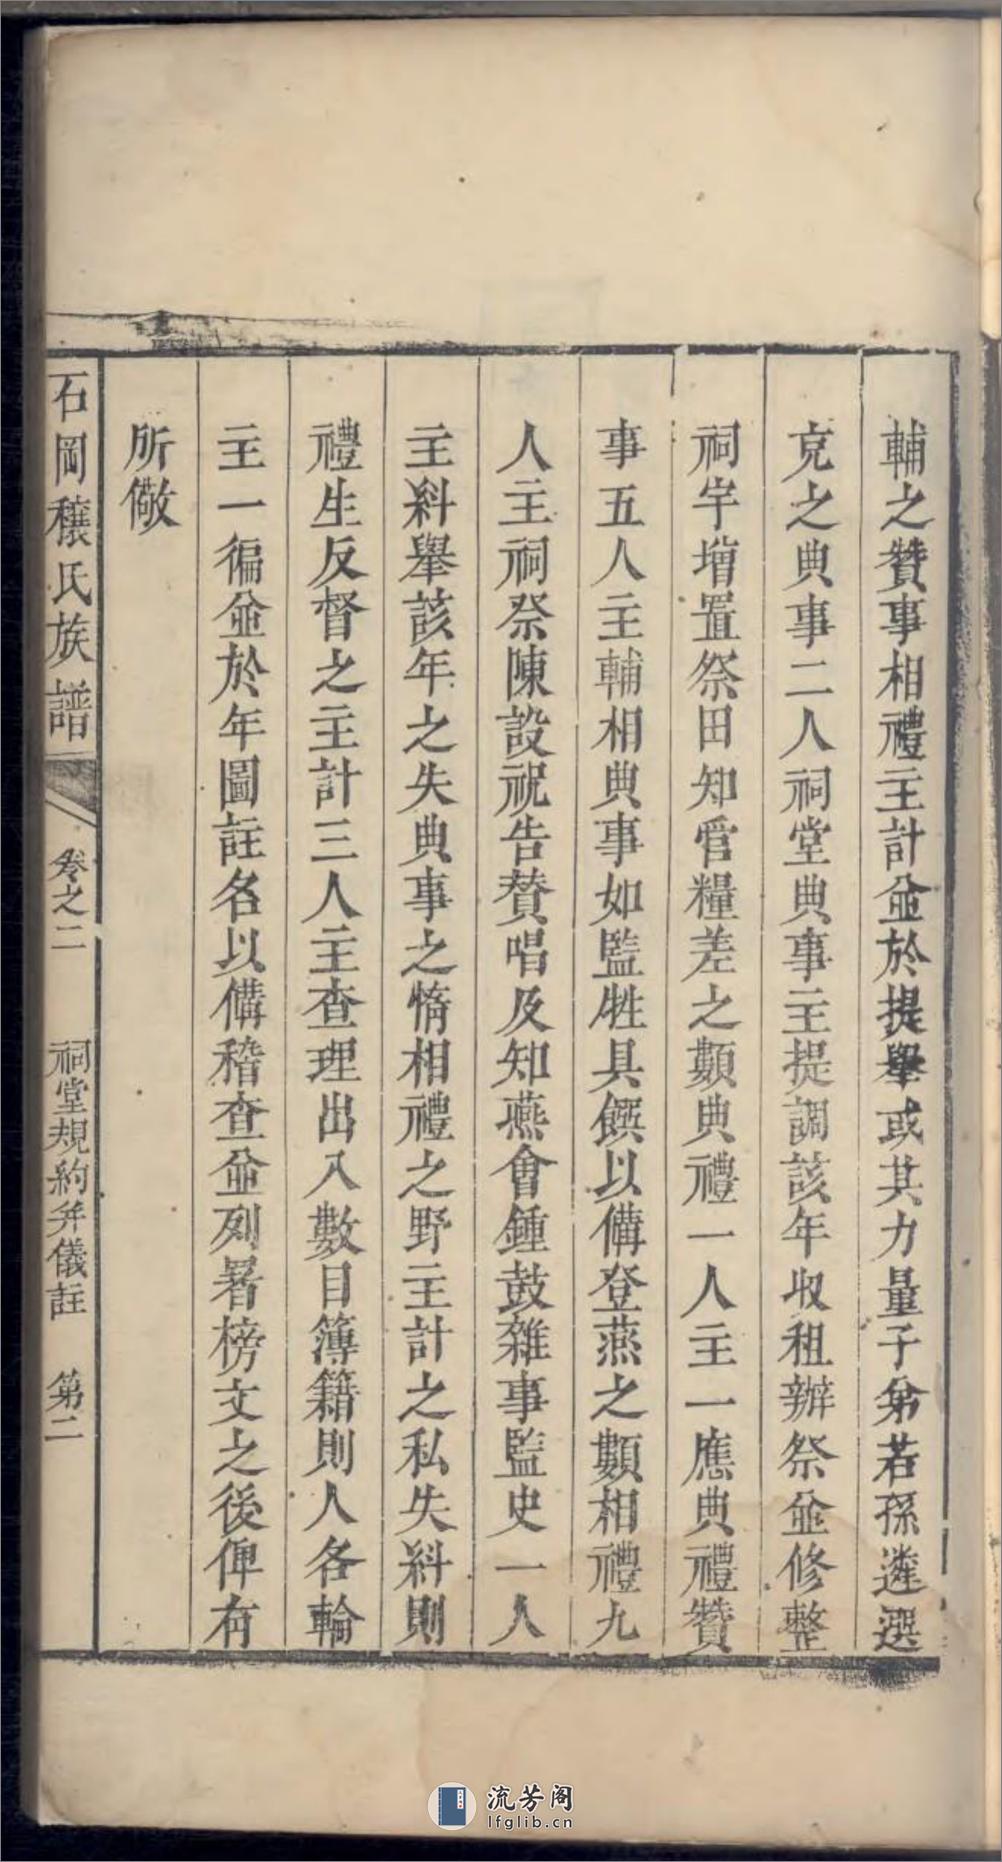 輔之贊事相禮主計並於提舉或其力量子弟若孫遴選
克之典事二人祠堂典事主提調該年收租辦祭並修整
祠宇增置祭田知管糧差之類典禮一人主一應典禮贊
事五人主輔相典事如監牲具饌以備登燕之類相禮九
人主祠祭陳設祝告贊唱及知燕會鍾鼓雜事監史一人
主糾舉該年之失典事之惰相禮之野主計之私失糾則
禮生反督之主計三人主查理出入數目簿籍則人各輪
主一徧並於年圖註名以備稽查並列署榜文之後俾有
所儆
石岡穰氏族譜 卷之二 祠堂規約并儀註 第二
流芳阁
lfglib.cn